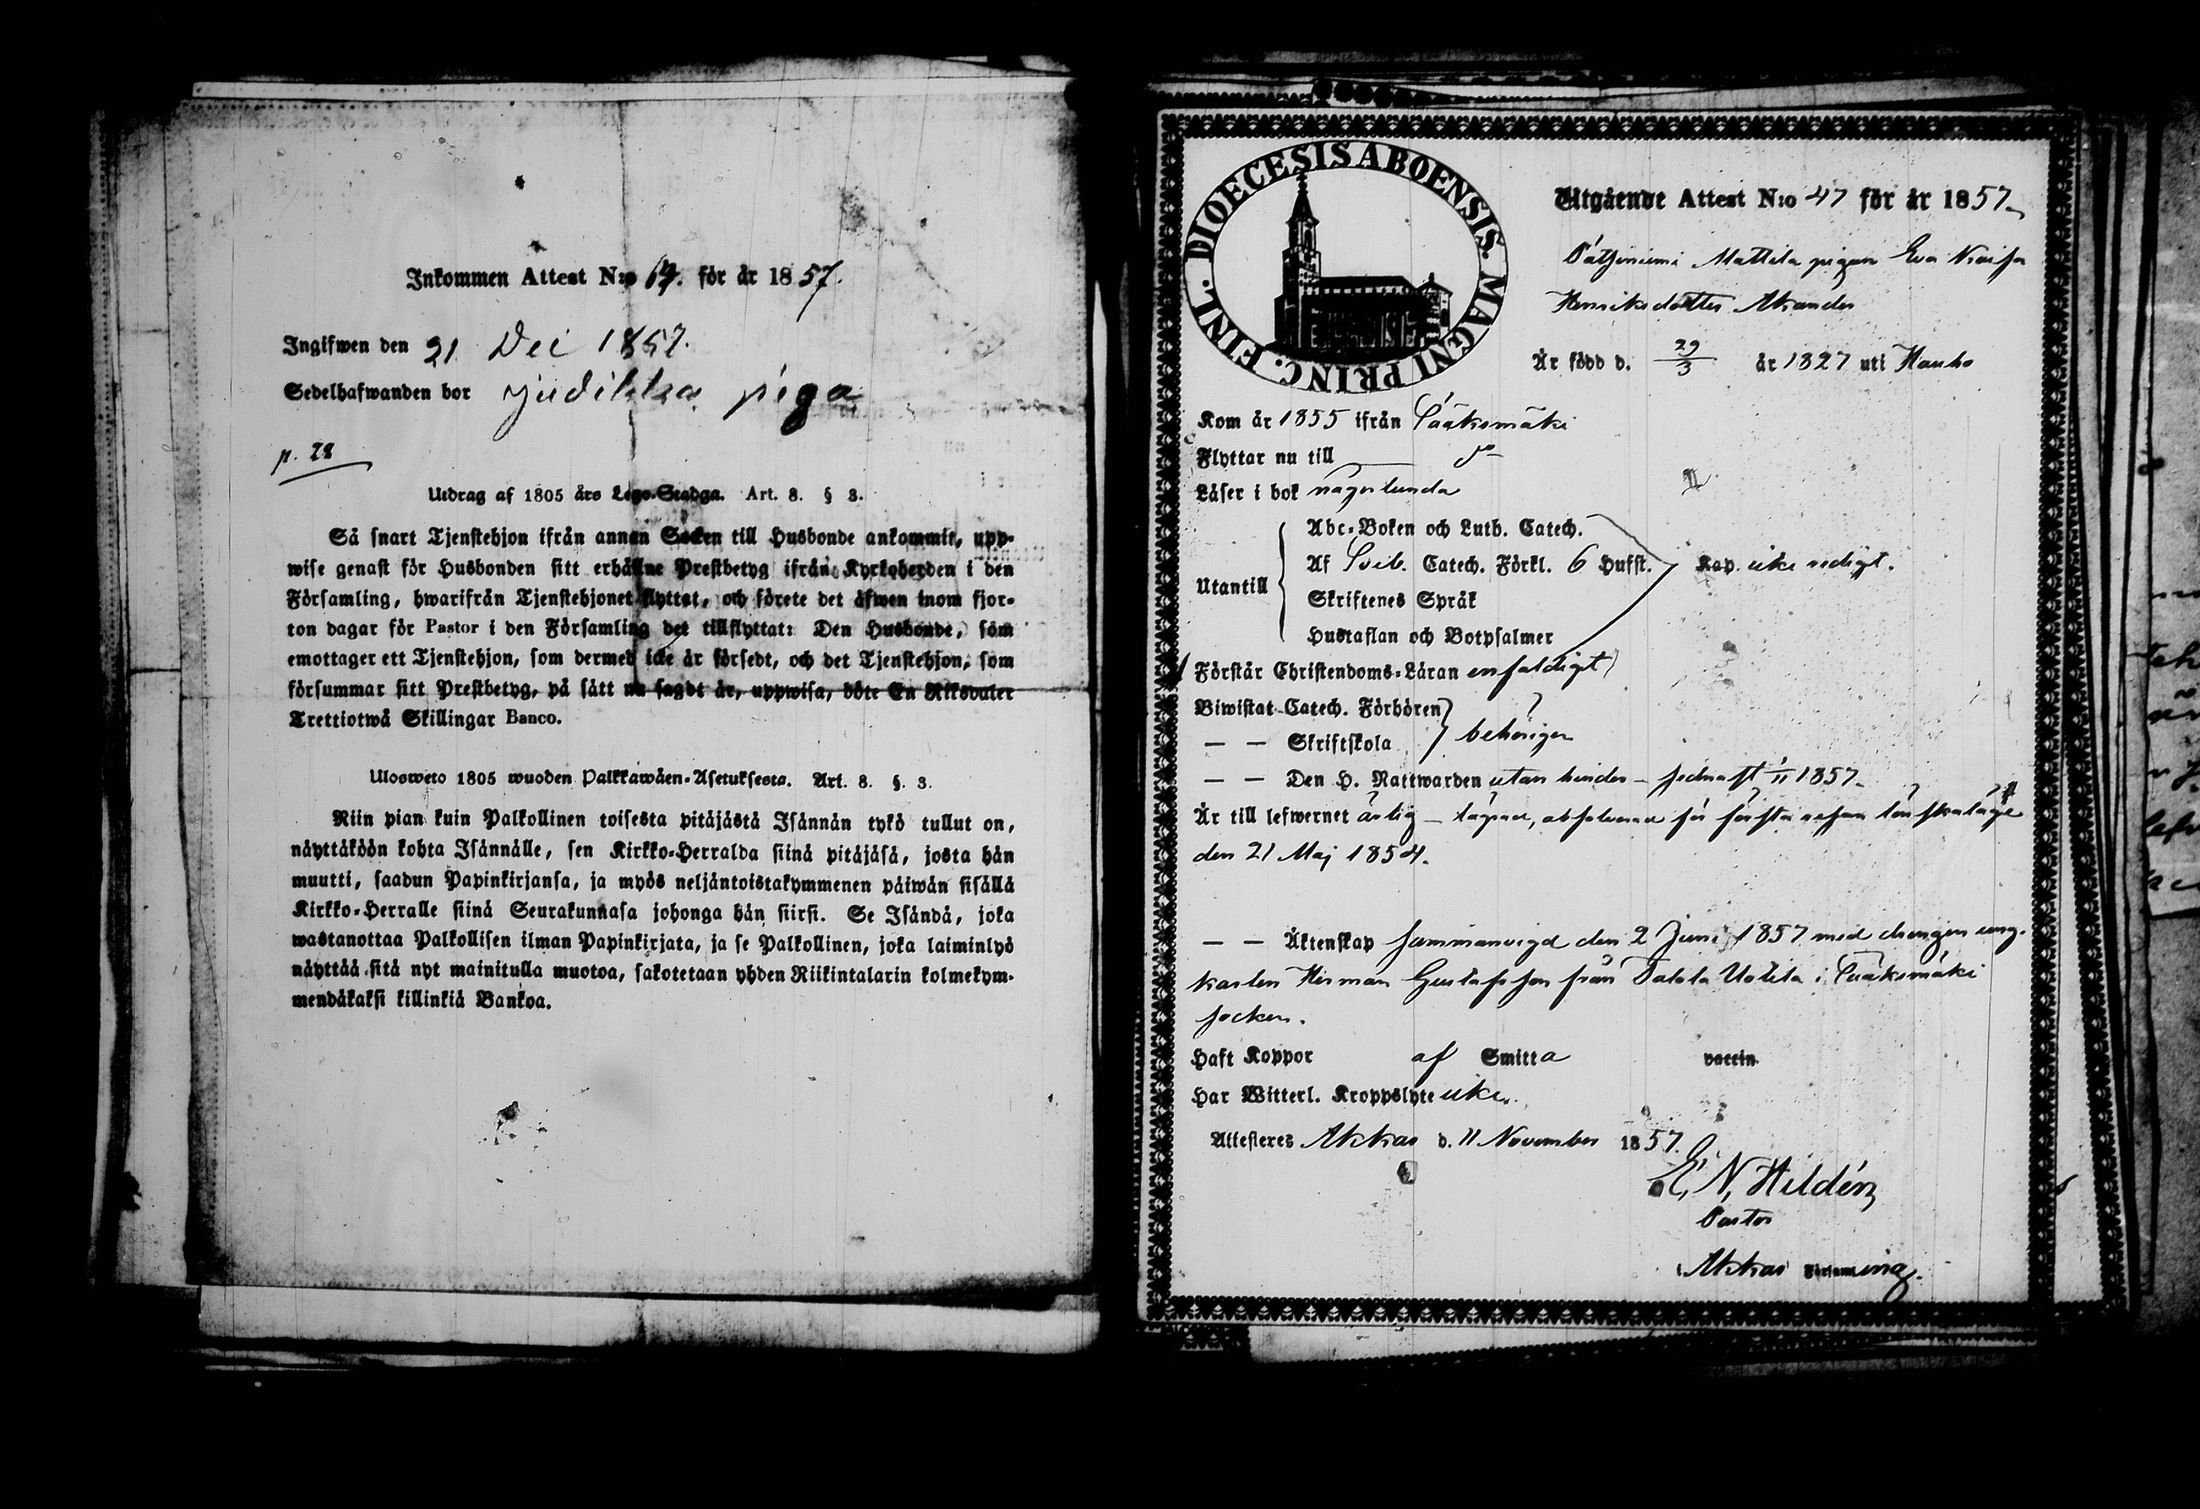 Inkommen Attest N:o 64. för år 1857.
Ingifwen den 21 Dec 1857.
Sedelhafwanden bor Judikka piga
p. 28
Utdrag af 1805 års Lego-Stadga. Art. 8. § 3.
Så snart Tjenstehjon ifrån annan Socken till Husbonde ankommit, upp-
wise genast för Husbonden sitt erhållne Prestbetyg ifrån Kyrkoherden i den
Församling, hwarifrån Tjenstehjonet flyttat, och förete det äfwen inom fjor-
ton dagar för Pastor i den Församling det tillflyttat: Den Husbonde, som
emottager ett Tjenstehjon, som dermed icke är försedt, och det Tjenstehjon, som
försummar sitt Prestbetyg, på sätt nu sagdt är, uppwisa, böte En Riksdaler
Trettiotwå Skillingar Banco.
Ulosweto 1805 wuoden Palkkawäen-Asetuksesta. Art. 8. §. 3.
Niin pian kuin Palkollinen toisesta pitäjästä Isännän tykö tullut on,
näyttäköön kohta Isännälle, sen Kirkko-Herralda siinä pitäjäsä, josta hän
muutti, saadun Papinkirjansa, ja myös neljäntoistakymmenen päiwän sisällä
Kirkko-Herralle siinä Seurakunnasa johonga hän siirsi. Se Isändä, joka
wastanottaa Palkollisen ilman Papinkirjata, ja se Palkollinen, joka laiminlyö
näyttää sitä nyt mainitulla muotoa, sakotetaan yhden Riikintalarin kolmekym-
mendäkaksi killinkiä Bankoa.
FINL. DIOECESIS ABOENSIS. MAGNI PRINC.
Utgående Attest N:o 47 för år 1857
Mattila pigan Eva
Henriksdotter Akander
Är född d. 29/3 år 1827 uti Hauho
Kom år 1855 ifrån Sääksmäki
Flyttar nu till
Läser i bok någorlunda
Utantill
Abc-Boken och Luth. Catech.
Af Sveb. Catech. Förkl. 6 Hufst. Kap. icke redigt.
Skriftenes Språk
Hustaflan och Botpsalmer
Förstår Christendoms-Läran enfaldigt
Biwistat Catech. Förhören
— — Skriftskola behörigen
— — Den H. Nattwarden utan hinder — sednast 1/11 1857
Är till lefwernet ärlig — absolverad för första resan lönskaläge
den 21 Maj 1854.
— — Äktenskap sammanvigd den 2 Juni 1857 med drengen ung-
karlen Herman Gustafsson från Uotila i Sääksmäki
socken.
Haft Koppor af Smitta vaccin
Har Witterl. Kroppslyte icke.
Attesteres Akkas d. 11 November 1857.
E. N. Hildén
Pastor
i Akkas Församling.